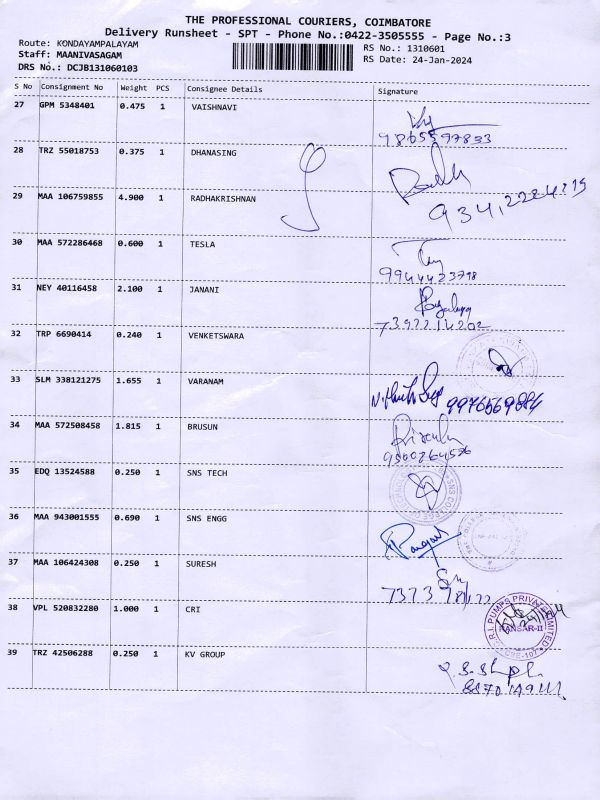 THE PROFESSIONAL COURIERS, COIMBATORE
Delivery Runsheet - SPT - Phone No.:0422-3505555 - Page No.:3
Route: KONDAYAMPALAYAM
RS No.: 1310601
Staff: MAANIVASAGAM
RS Date: 24-Jan-2024
DRS No.: DCJB131060103
S No Consignment No Weight PCS Consignee Details Signature
27 GPM 5348401 0.475 1 VAISHNAVI
9865597833
28 TRZ 55018753 0.375 1 DHANASING
29 MAA 106759855 4.900 1 RADHAKRISHNAN
30 MAA 572286468 0.600 1 TESLA
9944423798
31 NEY 40116458 2.100 1 JANANI
32 TRP 6690414 0.240 1 VENKETSWARA
33 SLM 338121275 1.655 1 VARANAM
9976569884
34 MAA 572508458 1.815 1 BRUSUN
35 EDQ 13524588 0.250 1 SNS TECH
36 MAA 943001555 0.690 1 SNS ENGG
37 MAA 106424308 0.250 1 SURESH
38 VPL 520832280 1.000 1 CRI
39 TRZ 42506288 0.250 1 KV GROUP